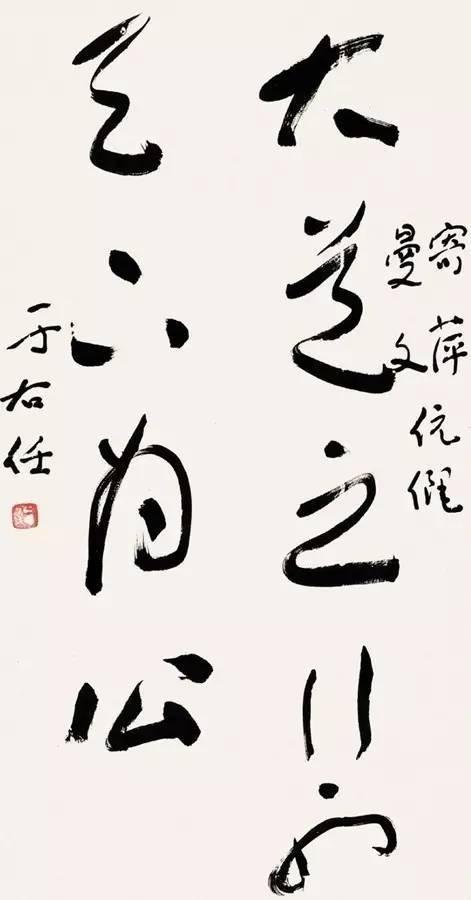 寄萍
曼文
伉儷
大道之行也
天下為公
于右任